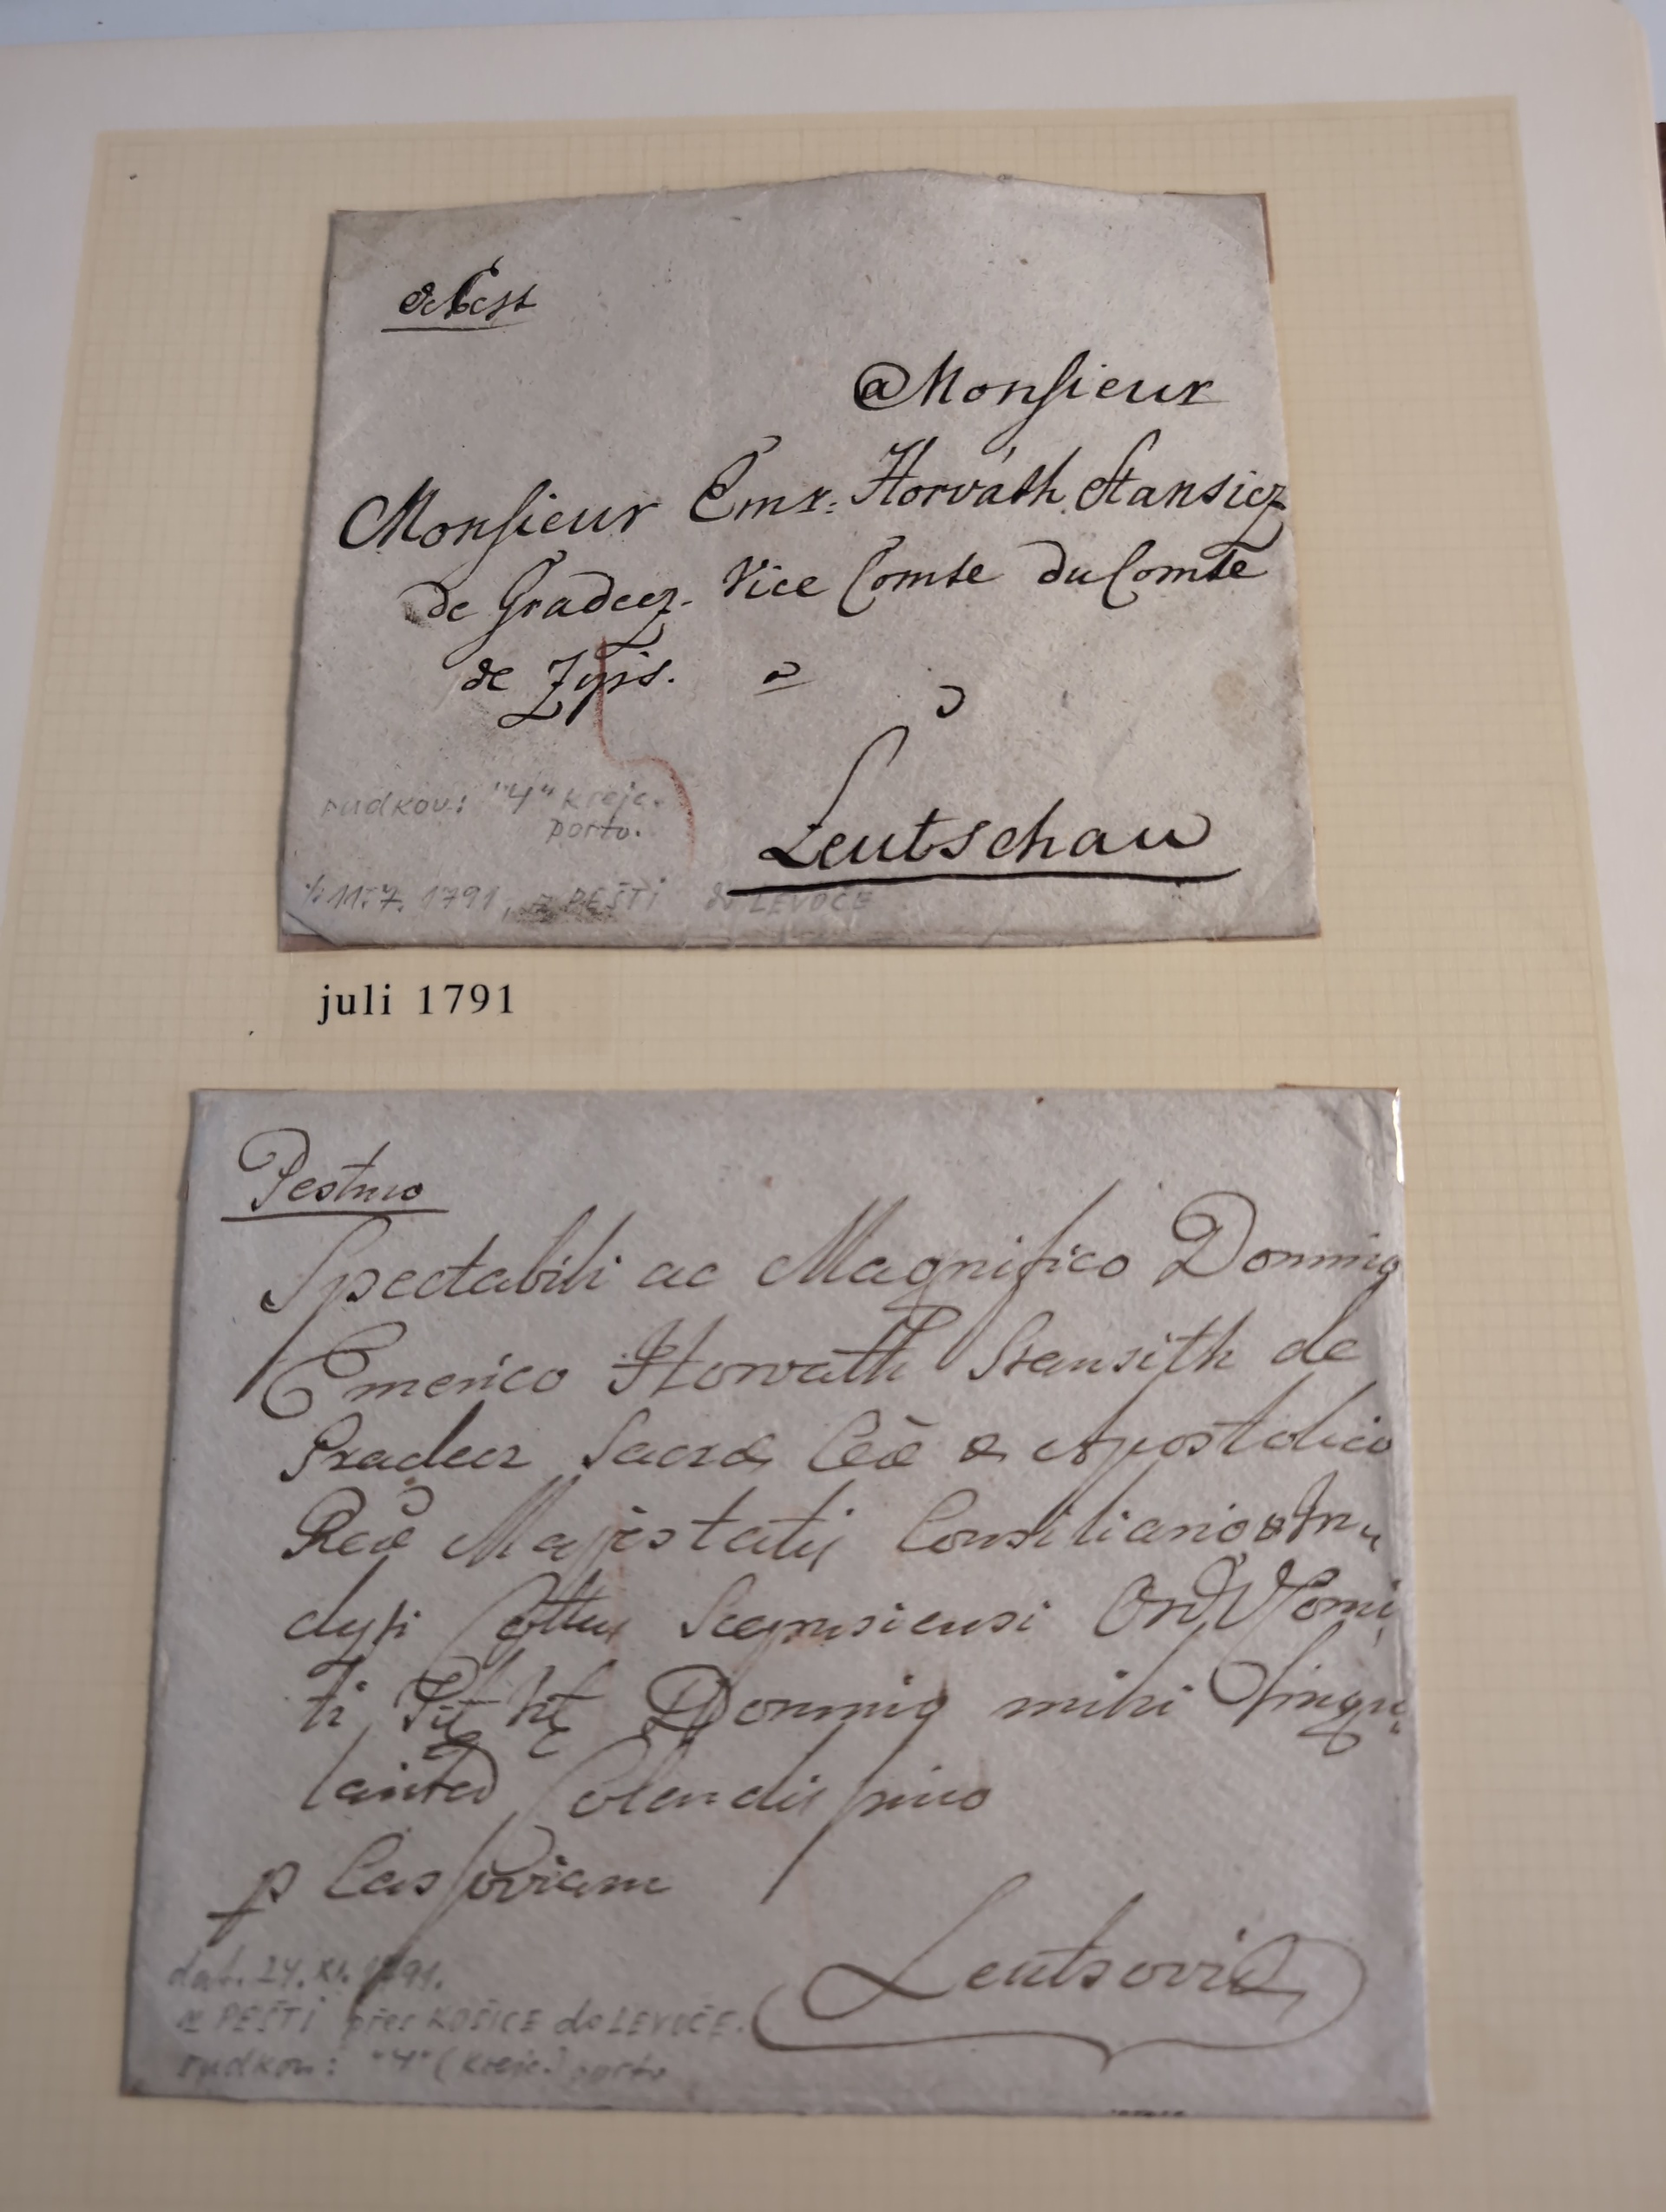 de Pest
a Monsieur
Monsieur Emr: Horváth Stansicz
de Gradecz. Vice Comte du Comte
de Zips. a
Leutschau
rudkou: "4" krejc.
porto.
11.7. 1791, z PEŠTI do LEVOČE
juli 1791
Pestino
Spectabili ac Magnifico Domino
Emerico Horvath Stansith de
Gradecz Sacrae Ceo &amp; Apostolico
Reae Majestatis Consiliario
Scepusiensi Ord V Comi,
ti Domino mihi Singu,
Colendissimo
p Cassoviam
Leutsovia
dat. 24. XI. 1791.
z PEŠTI přes KOŠICE do LEVOČE.
rudkou: "4" (krejc.) porto